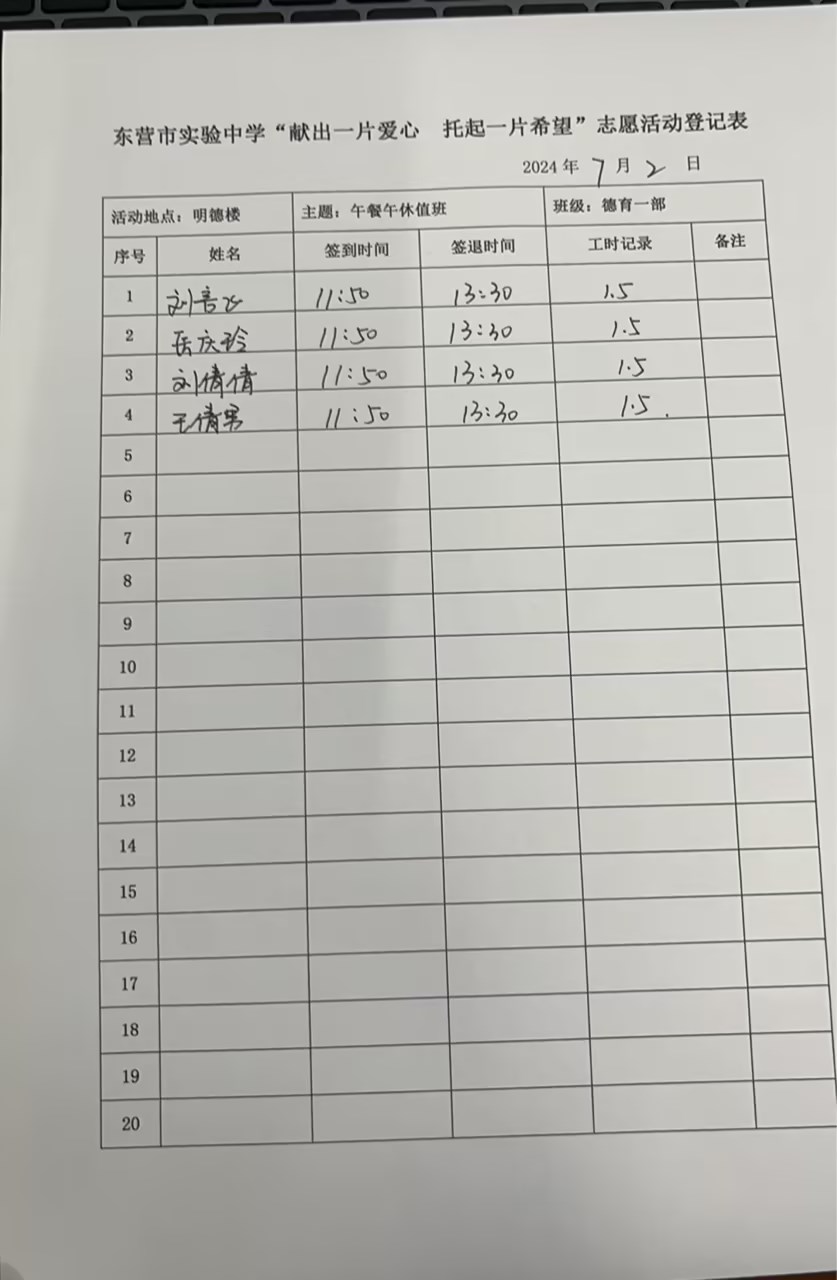 东营市实验中学“献出一片爱心 托起一片希望”志愿活动登记表
2024年 7 月 2 日
活动地点：明德楼 主题：午餐午休值班 班级：德育一部
序号 姓名 签到时间 签退时间 工时记录 备注
1 刘 11:50 13:30 1.5
2 岳庆玲 11:50 13:30 1.5
3 刘倩倩 11:50 13:30 1.5
4 王倩男 11:50 13:30 1.5.
5
6
7
8
9
10
11
12
13
14
15
16
17
18
19
20